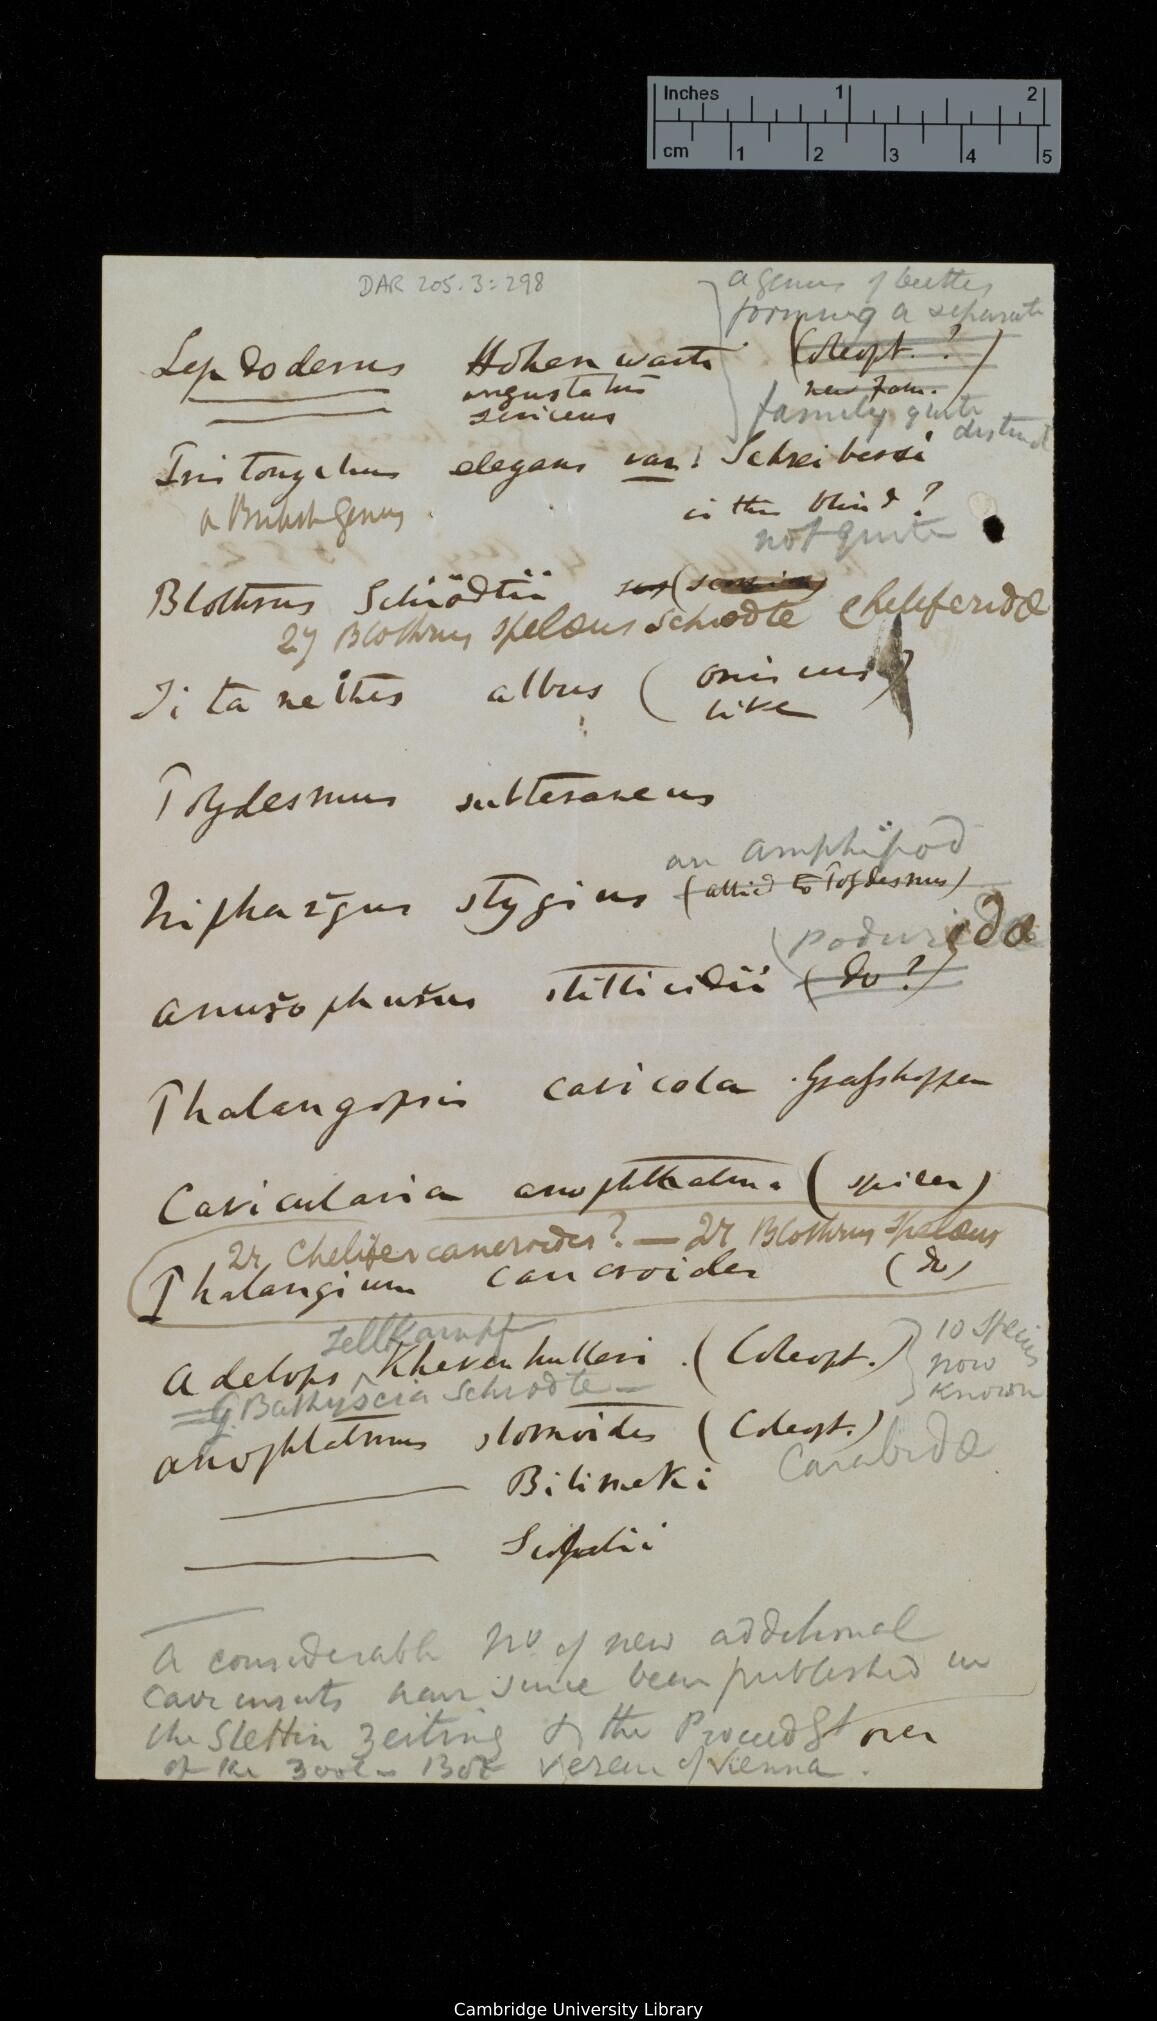 Inches 1 2
cm 1 2 3 4 5
DAR 205.3:298
a genus of beetles
forming a separate
Leptoderus Hohenwarti (Coleopt. ?)
angustatus new fam.
sericeus family quite
distinct
Tritonychus elegans var: Schreibersi
a British Genus is this blind?
not quite
Blothrus Schiödtii
Blothrus spelæus Schiodte Cheliferidæ
Titanethes albus (oniscus
like)
Polydesmus subteraneus
an amphipod
Niphargus stygius (allied to Polydesmus)
Poduridæ
Anurophurus stillicidii (do ?)
Phalangopsis cavicola Grasshopper
Cavicularia anophthalma (spider)
Chelifer cancroides? — Blothrus spelæus
Phalangium cancroides (do)
Tellkampf
Adelops Khevenhulleri (Coleopt.) 10 species
now
known
= G. Bathyscia Schiodte —
Anophtalmus stomoides (Coleopt.)
Carabidæ
Bilimeki
A considerable No of new additional
cave insects have since been published in
the Stettin Zeiting & the Proceedgs over
of the Zool. Bot Verein of Vienna.
Cambridge University Library